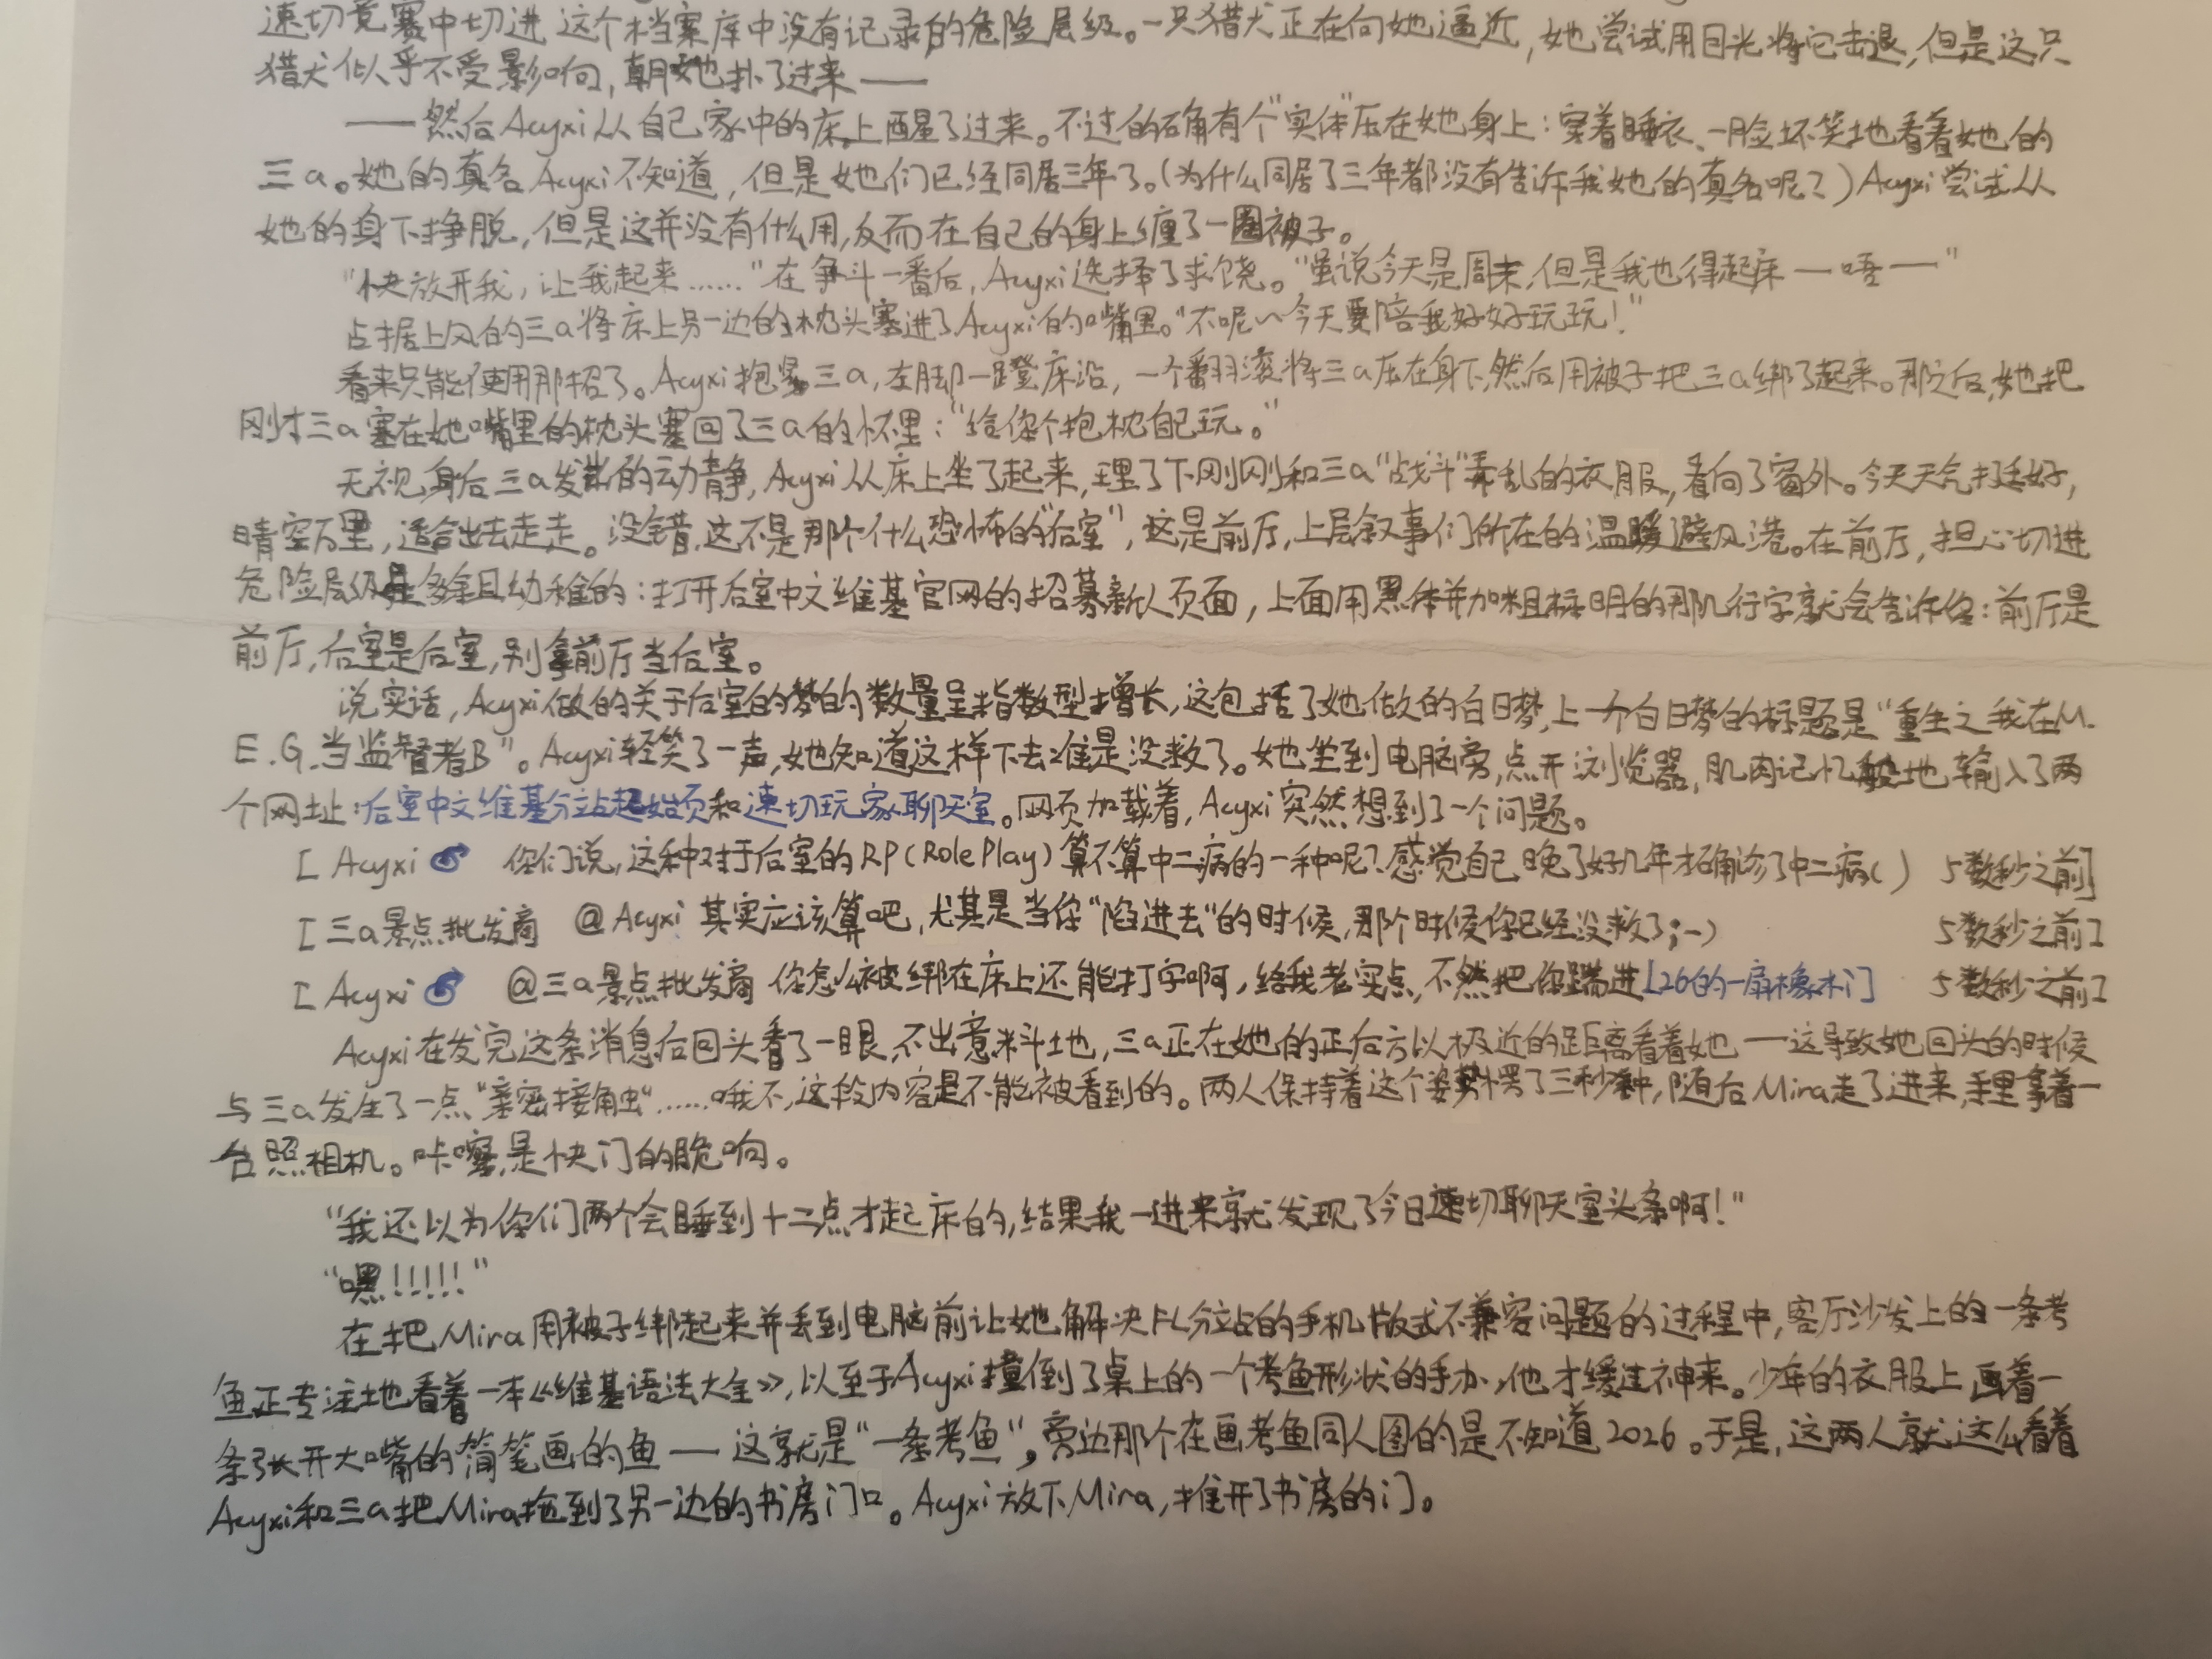 速切竞赛中切进 这个档案库中没有记录的危险层级。一只猎犬正在向她逼近,她尝试用目光将它击退,但是这只
猎犬似乎不受影响,朝她扑了过来——
——然后Acyxi从自己家中的床上醒了过来。不过的确有个"实体"压在她身上:穿着睡衣、一脸坏笑地看着她的
三a。她的真名Acyxi不知道,但是她们已经同居三年了。(为什么同居了三年都没有告诉我她的真名呢?)Acyxi尝试从
她的身下挣脱,但是这并没有什么用,反而在自己的身上缠了一圈被子。
"快放开我,让我起来……"在争斗一番后,Acyxi选择了求饶。"虽说今天是周末,但是我也得起床—唔—"
占据上风的三a将床上另一边的枕头塞进了Acyxi的嘴里。"不呢~今天要陪我好好玩玩!"
看来只能使用那招了。Acyxi抱紧三a,左脚一蹬床沿,一个翻滚将三a压在身下,然后用被子把三a绑了起来。那之后,她把
刚才三a塞在她嘴里的枕头塞回了三a的怀里:"给你个抱枕自己玩。"
无视身后三a发出的动静,Acyxi从床上坐了起来,理了下刚刚和三a"战斗"弄乱的衣服,看向了窗外。今天天气挺好,
晴空万里,适合出去走走。没错,这不是那个什么恐怖的"后室",这是前厅,上层叙事们所在的温暖避风港。在前厅,担心切进
危险层级是多余且幼稚的:打开后室中文维基官网的招募新人页面,上面用黑体并加粗标明的那几行字就会告诉你:前厅是
前厅,后室是后室,别拿前厅当后室。
说实话,Acyxi做的关于后室的梦的数量呈指数型增长,这包括了她做的白日梦,上一个白日梦的标题是"重生之我在M.
E.G.当监督者B"。Acyxi轻笑了一声,她知道这样下去准是没救了。她坐到电脑旁,点开浏览器,肌肉记忆般地输入了两
个网址:后室中文维基分站起始页和速切玩家聊天室。网页加载着,Acyxi突然想到了一个问题。
[ Acyxi 你们说,这种对于后室的RP(Role Play)算不算中二病的一种呢?感觉自己晚了好几年才确诊了中二病() 5数秒之前]
[ 三a景点批发商 @Acyxi 其实应该算吧,尤其是当你"陷进去"的时候,那个时候你已经没救了;-) 5数秒之前]
[ Acyxi @三a景点批发商 你怎么被绑在床上还能打字啊,给我老实点,不然把你踹进[26的一扇橡木门] 5数秒之前]
Acyxi在发完这条消息后回头看了一眼,不出意料地,三a正在她的正后方以极近的距离看着她—这导致她回头的时候
与三a发生了一点"亲密接触"……哦不,这段内容是不能被看到的。两人保持着这个姿势愣了三秒钟,随后Mira走了进来,手里拿着一
台照相机。咔嚓,是快门的脆响。
"我还以为你们两个会睡到十二点才起床的,结果我一进来就发现了今日速切聊天室头条啊!"
"嘿!!!!!"
在把Mira用被子绑起来并丢到电脑前让她解决FL分站的手机版式不兼容问题的过程中,客厅沙发上的一条考
鱼正专注地看着一本《维基语法大全》,以至于Acyxi撞倒了桌上的一个考鱼形状的手办,他才缓过神来。少年的衣服上画着一
条张开大嘴的简笔画的鱼—这就是"一条考鱼",旁边那个在画考鱼同人图的是不知道2026。于是,这两人就这么看着
Acyxi和三a把Mira拖到了另一边的书房门口。Acyxi放下Mira,推开了书房的门。